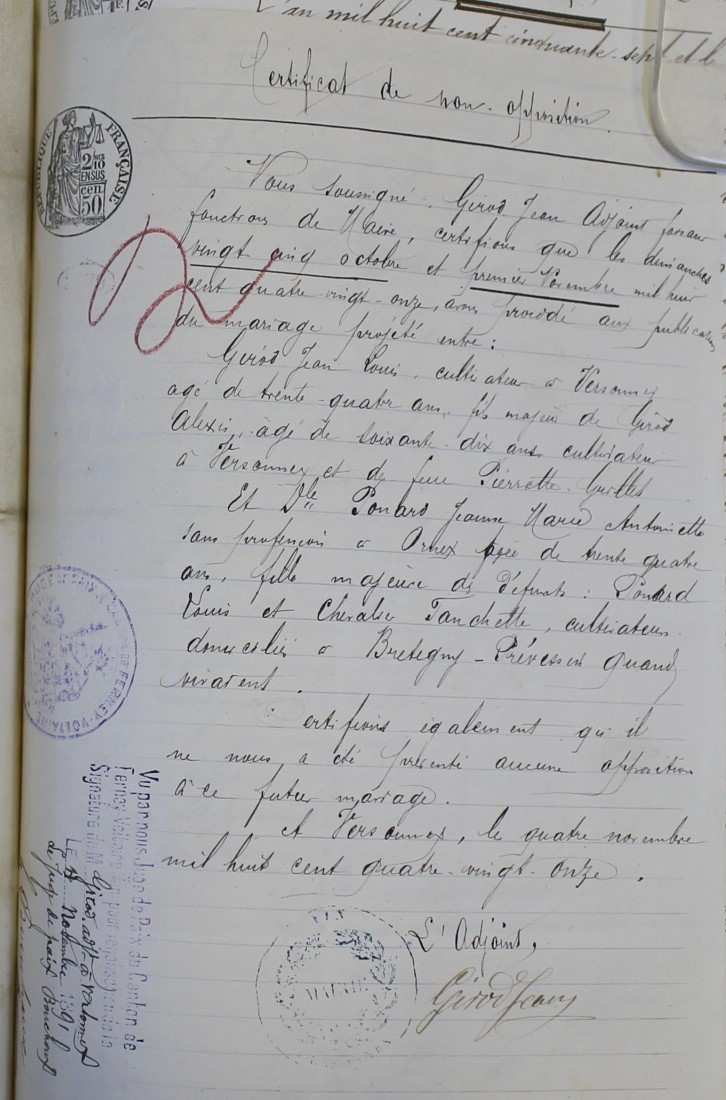 L'an mil huit cent cinquante-sept et le
Certificat de non-opposition.
RÉPUBLIQUE FRANÇAISE
2/10 EN SUS
50 cen
Nous soussigné Girod Jean Adjoint faisant
fonctions de Maire, certifions que les dimanches
vingt cinq octobre et premier Novembre mil huit
cent quatre-vingt-onze, avons procédé aux publications
du mariage projeté entre:
Girod Jean Louis, cultivateur à Versonnex
agé de trente-quatre ans, fils majeur de Girod
Alexis, âgé de soixante-dix ans cultivateur
à Versonnex et de feue Pierrette
Et Dlle Ponard Jeanne Marie Antoinette
sans profession à Ornex agée de trente quatre
ans, fille majeure de défunts: Ponard
Louis et Chevalier Fanchette, cultivateurs
domiciliés à Bretigny-Prévessin quand
vivaient.
ertifions également qu'il
ne nous a été présenté aucune opposition
à ce futur mariage.
et Versonnex, le quatre novembre
mil huit cent quatre-vingt-onze.
L'Adjoint,
Girod Jean
MAIRIE
FERNEY-VOLTAIRE
Vu par nous Juge de Paix du Canton de
Ferney Voltaire pour la
Signature de M Girod adjt à
LE 4 Novembre 1891
de juge de paix